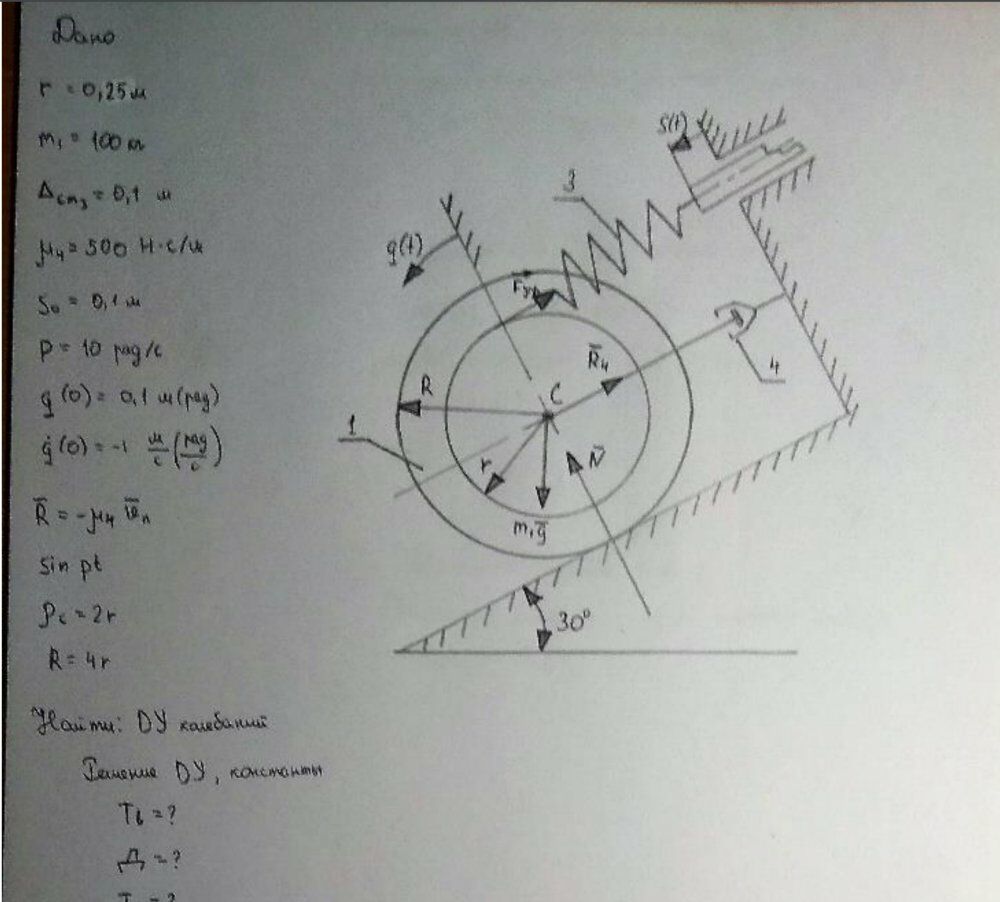 Дано
r = 0,25 м
m₁ = 100 кг
Δст₃ = 0,1 м
μ₄ = 500 Н·с/м
S₀ = 0,1 м
P = 10 рад/с
q(0) = 0,1 м(рад)
q̇(0) = -1 м/с (рад/с)
R̄ = -μ₄ ῡₙ
sin pt
ρc = 2r
R = 4r
Найти: ДУ колебаний
Решение ДУ, константы
Tb = ?
Д = ?
S(t)
3
q(t)
R̄₄
4
R
C
1
r
N̄
m₁ḡ
30°